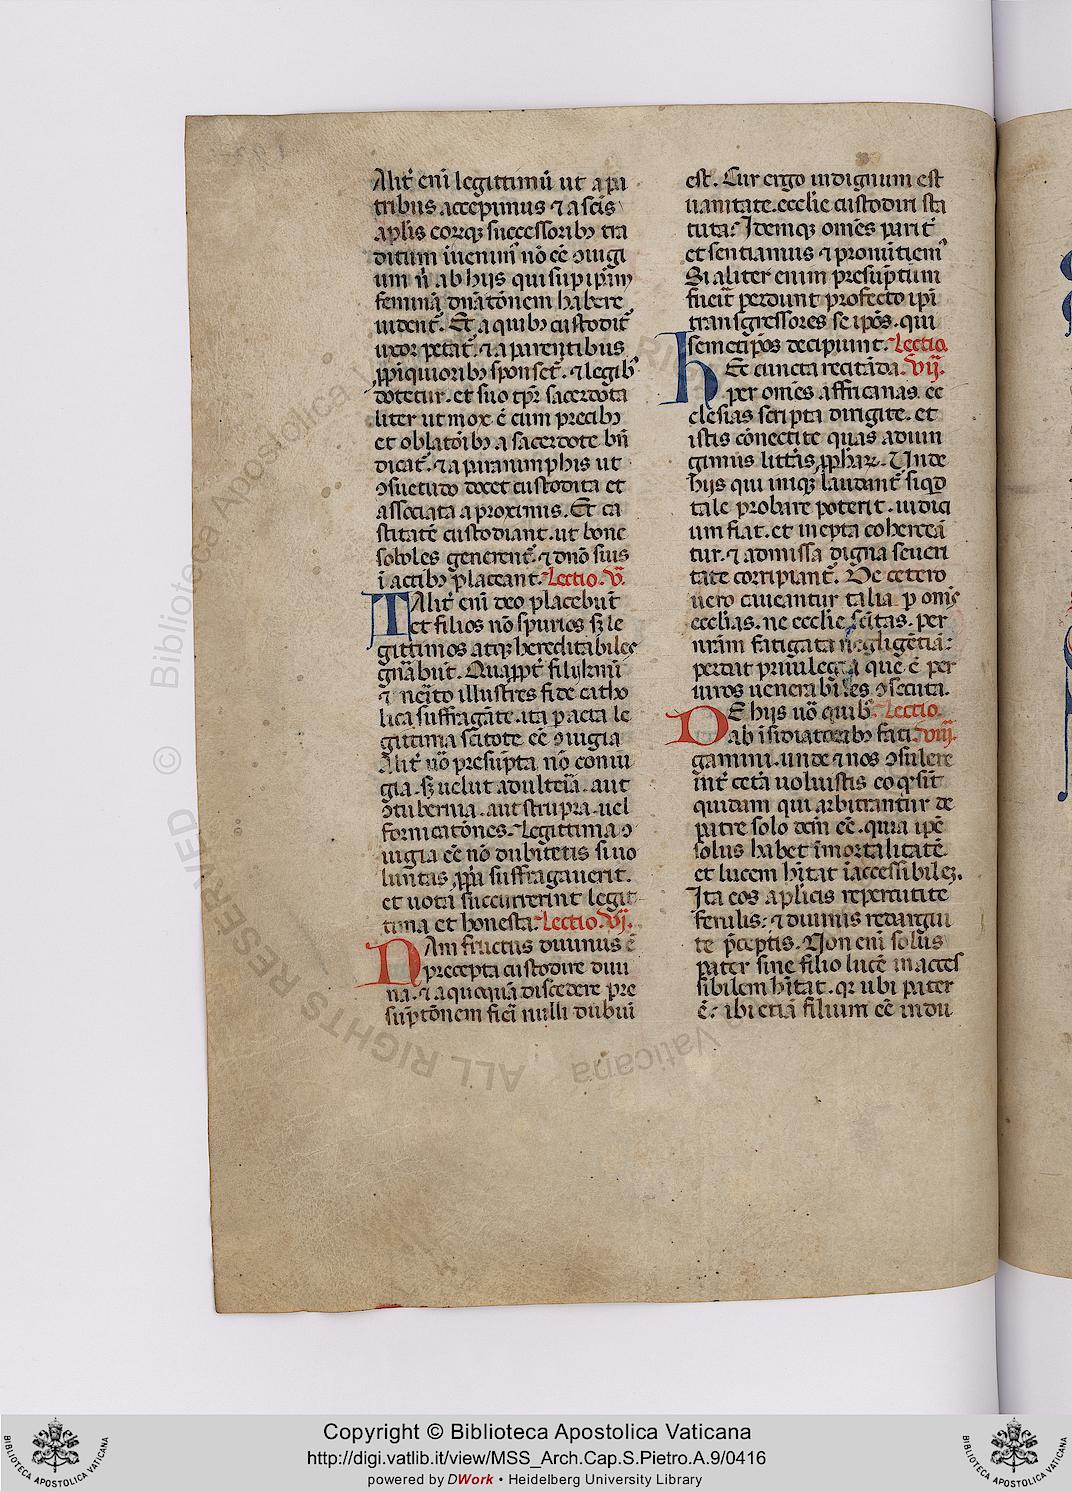 Alit̾ eni̅ legittimu̅ ut a pa
tribus accepimus ⁊ a sc̅is
ap̅lis eorq; successorib; tra
ditum inuenim̾ no̅ e̅e ꝯiugi
um n̅ ab hijs qui sup ip̅am
femina̅ dn̅ato̅nem habere
uident̾. Et a quib; custodit̾
uxor petat̾. ⁊ a parentibus
ꝓpi̅quiorib; spo̅nset̾. ⁊ legib;
dotetur. et suo tp̅r sacerdota
liter ut mox e̅ cum precib;
et oblato̅ib; a sacerdote bn̅
dicat̾. ⁊ a paranimphis ut
ꝯsuetudo docet custodita et
associata a proximis. Et ca
stitate̅ custodiant. ut bone
soboles generent̾. ⁊ dn̅o suis
i̅ actib; placeant. Lectio. v̅.
TAlit̾ eni̅ deo placebu̅t
et filios no̅ spurios sꝫ le
gittimos atq; hereditabiles
gn̅abu̅t. Quapp̅t̾ filij kmi̅
⁊ me̅ito illustres fide catho
lica suffraga̅te. ita p̲acta le
gittima scitote e̅e ꝯiugia
Alit̾ u̅o presu̅pta no̅ coniu
gia. sꝫ uelut adulteia̅. aut
ꝯtubernia. aut strupra. uel
fornicato̅nes. Legittima ꝯ
iugia e̅e no̅ dubitetis si uo
luntas ꝓp̅a suffragauerit.
et uota succurrerint legit
tima et honesta. Lectio. vi̅.
NAm fructus diuinus e̅
precepta custodire diui
na. ⁊ a quoqua̅ discedere pre
su̅pto̅nem fiei̅ nulli dubiu̅
est. Cur ergo indignum est
uanitate. ecclie custodiri sta
tuta? Idemq; om̅es parit̾
et sentiamus ⁊ pronu̅tiem̾
Si aliter enim presu̅ptum
fueit̾ perdunt profecto ip̅i
transgressores se ip̅os. qui
semetip̅os decipiunt. Lectio
HEc cuncta recita̅da. vij̅.
per om̅es affricanas. ec
clesias scripta dirigite. et
istis co̅nectite quas adiun
gimus litt̾as ꝓphaꝝ. Unde
hijs qui iniq; laudant̾ siqd̅
tale probare poterit. iudici
um fiat. et inepta coherea̅
tur. ⁊ admissa digna seueri
tate corripiant̾. De cetero
uero caueantur talia p̲ om̅s
ecclias. ne ecclie sc̅itas. per
nr̅am fatigata negligentia̅:
perdat priuilegia que e̅ per
uiros uenerabiles ꝯsecuta.
DE hijs uo̅ quib; Lectio.
ab i̅sidiatorib; fati viij̅.
gamini. unde ⁊ nos ꝯsulere
int̾ cet̾a uoluistis eo q̅ si̅t
quidam qui arbitrantur de
patre solo dc̅m e̅e. quia ip̅e
solus habet i̅mortalitate̅
et lucem hi̅tat i̅accessibilez.
Ita eos ap̅licis repercutite
ferulis: ⁊ diuinis redargui
te p̅ceptis. Non eni̅ solus
pater sine filio luce̅ inacces
sibilem hi̅tat. qr̅ ubi pater
e̅: ibi etia̅ filium e̅e indu
Copyright © Biblioteca Apostolica Vaticana
http://digi.vatlib.it/view/MSS_Arch.Cap.S.Pietro.A.9/0416
powered by DWork • Heidelberg University Library